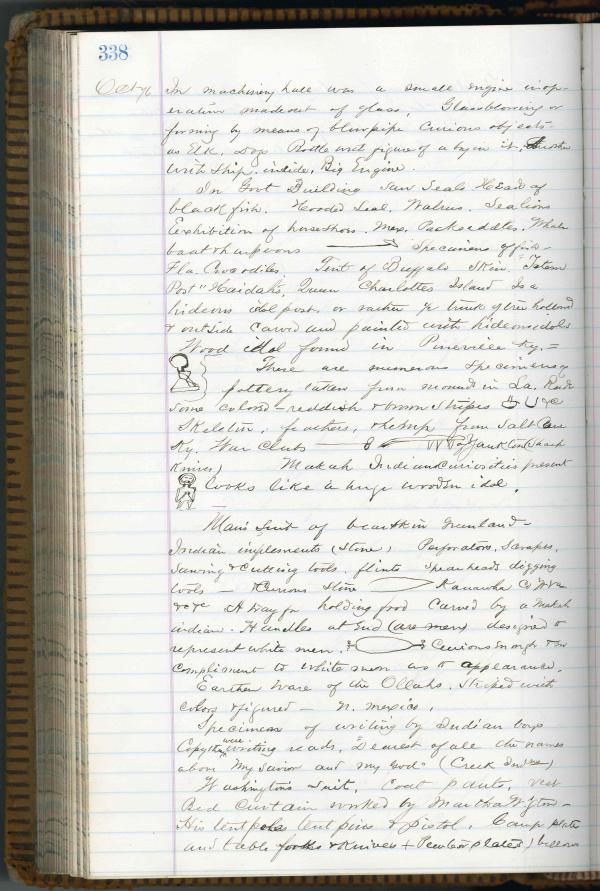 338
Oct 76 In machinery hall was a small engine in op-
eration made out of glass, Glassblowing or
forming by means of blowpipe curious objects-
as Elk, Dog Bottle with figure of a boy in it,
with ship inside, Big Engine.
In Govt Building Saw Seals Head of
black fish. Hooded Seal, Walrus. Sealions
Exhibition of horseshoes. Mex. Packsaddles. Whale
boat & harpoons Specimens of fish-
Fla. Crocodiles. Tent of Buffalo Skin. "Totem
Post" Haidah's, Queen Charlottes Island Is a
hideous idol post, or rather ye trunk of tree hollowed
& outside carved and painted with hideous idols
Wood idol found in Pineville Ky. =
There are numerous specimens of
pottery taken from mound in La.
some colored - reddish & brown stripes &c
Skeleton, feathers, & hemp from Salt Cave
Ky. War Clubs of Yankton
Knives) Makah Indian curiosities present
looks like a huge wooden idol.
Man's Suit of bearskin Greenland -
Indian implements (stone) Perforators, Scrapes,
Sawing & cutting tools. flints Spearheads digging
tools - Curious Stone Kanawha Co W Va
&c &c A tray for holding food carved by a Makah
indian. Handles at End (are men designed to
represent white men. Curious enough &
compliment to white men as to appearance.
Earthen ware of the Ollahs, striped with
colors & figured - N. Mexico,
Specimens of writing by Indian boys
Copy they were writing reads, "Dearest of all the names
above "My Savior and my God" (Creek Indians)
Washingtons Suit, coat pants, vest
Bed Curtain worked by Martha W'gton -
His tent poles tent pins & pistol, Camp plates
and table forks & Knives + Pewter plates) bellows